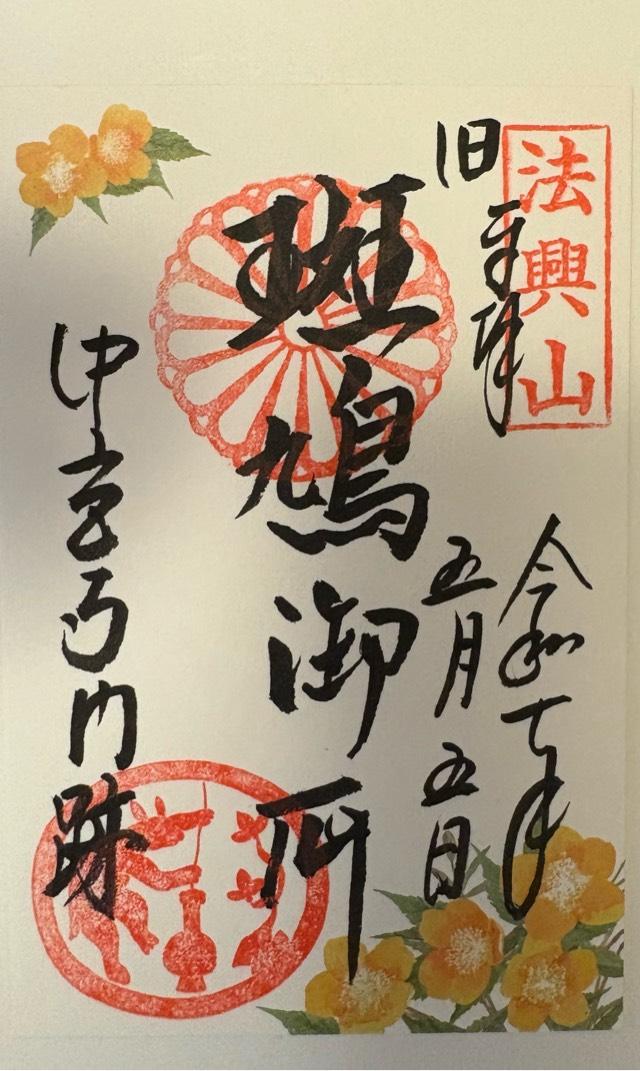 法興山
奉拝
令和七年
五月五日
旧
斑鳩御所
中宮寺門跡